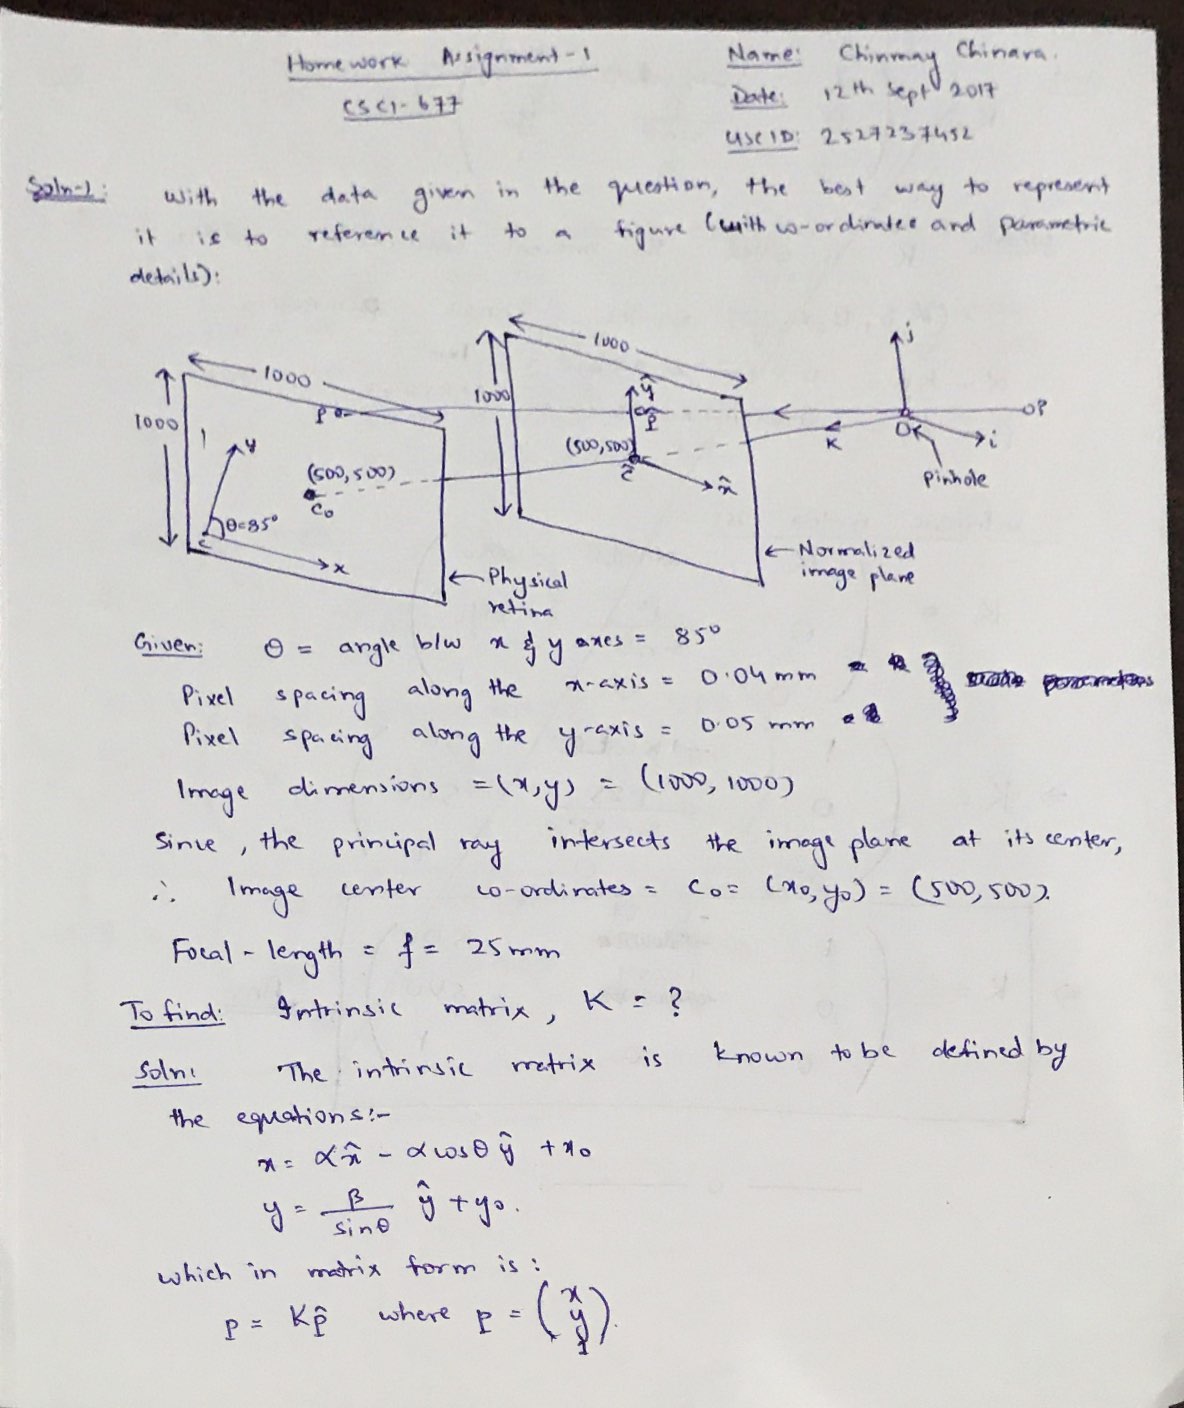 Homework Assignment-1
CSCI-677
Name: Chinmay Chinara.
Date: 12th Sept 2017
USC ID: 2527237452
Soln-1: With the data given in the question, the best way to represent
it is to reference it to a figure (with co-ordinates and parametric
details):
1000
1000
P
y
(500,500)
C₀
θ=85°
c
x
← Physical
retina
1000
1000
ŷ
p̂
(500,500)
ĉ
x̂
← Normalized
image plane
j
P
O
i
K
Pinhole
Given: θ = angle b/w x & y axes = 85°
Pixel spacing along the x-axis = 0.04 mm
Pixel spacing along the y-axis = 0.05 mm
Image dimensions = (x,y) = (1000, 1000)
Since, the principal ray intersects the image plane at its center,
∴ Image center co-ordinates = C₀ = (x₀, y₀) = (500, 500).
Focal-length = f = 25 mm
To find: Intrinsic matrix, K = ?
Soln: The intrinsic matrix is known to be defined by
the equations:-
x = αx̂ - α cosθ ŷ + x₀
y = β/sinθ ŷ + y₀.
which in matrix form is:
p = Kp̂ where p = (x y 1).